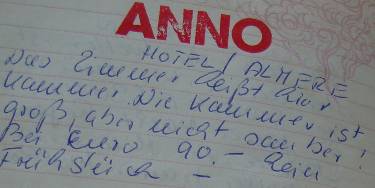 ANNO
HOTEL / ALMERE
Das Zimmer heißt hier
Kammer. Die Kammer ist
groß, aber nicht sauber!
Bei Euro 90.- kein
Frühstück -